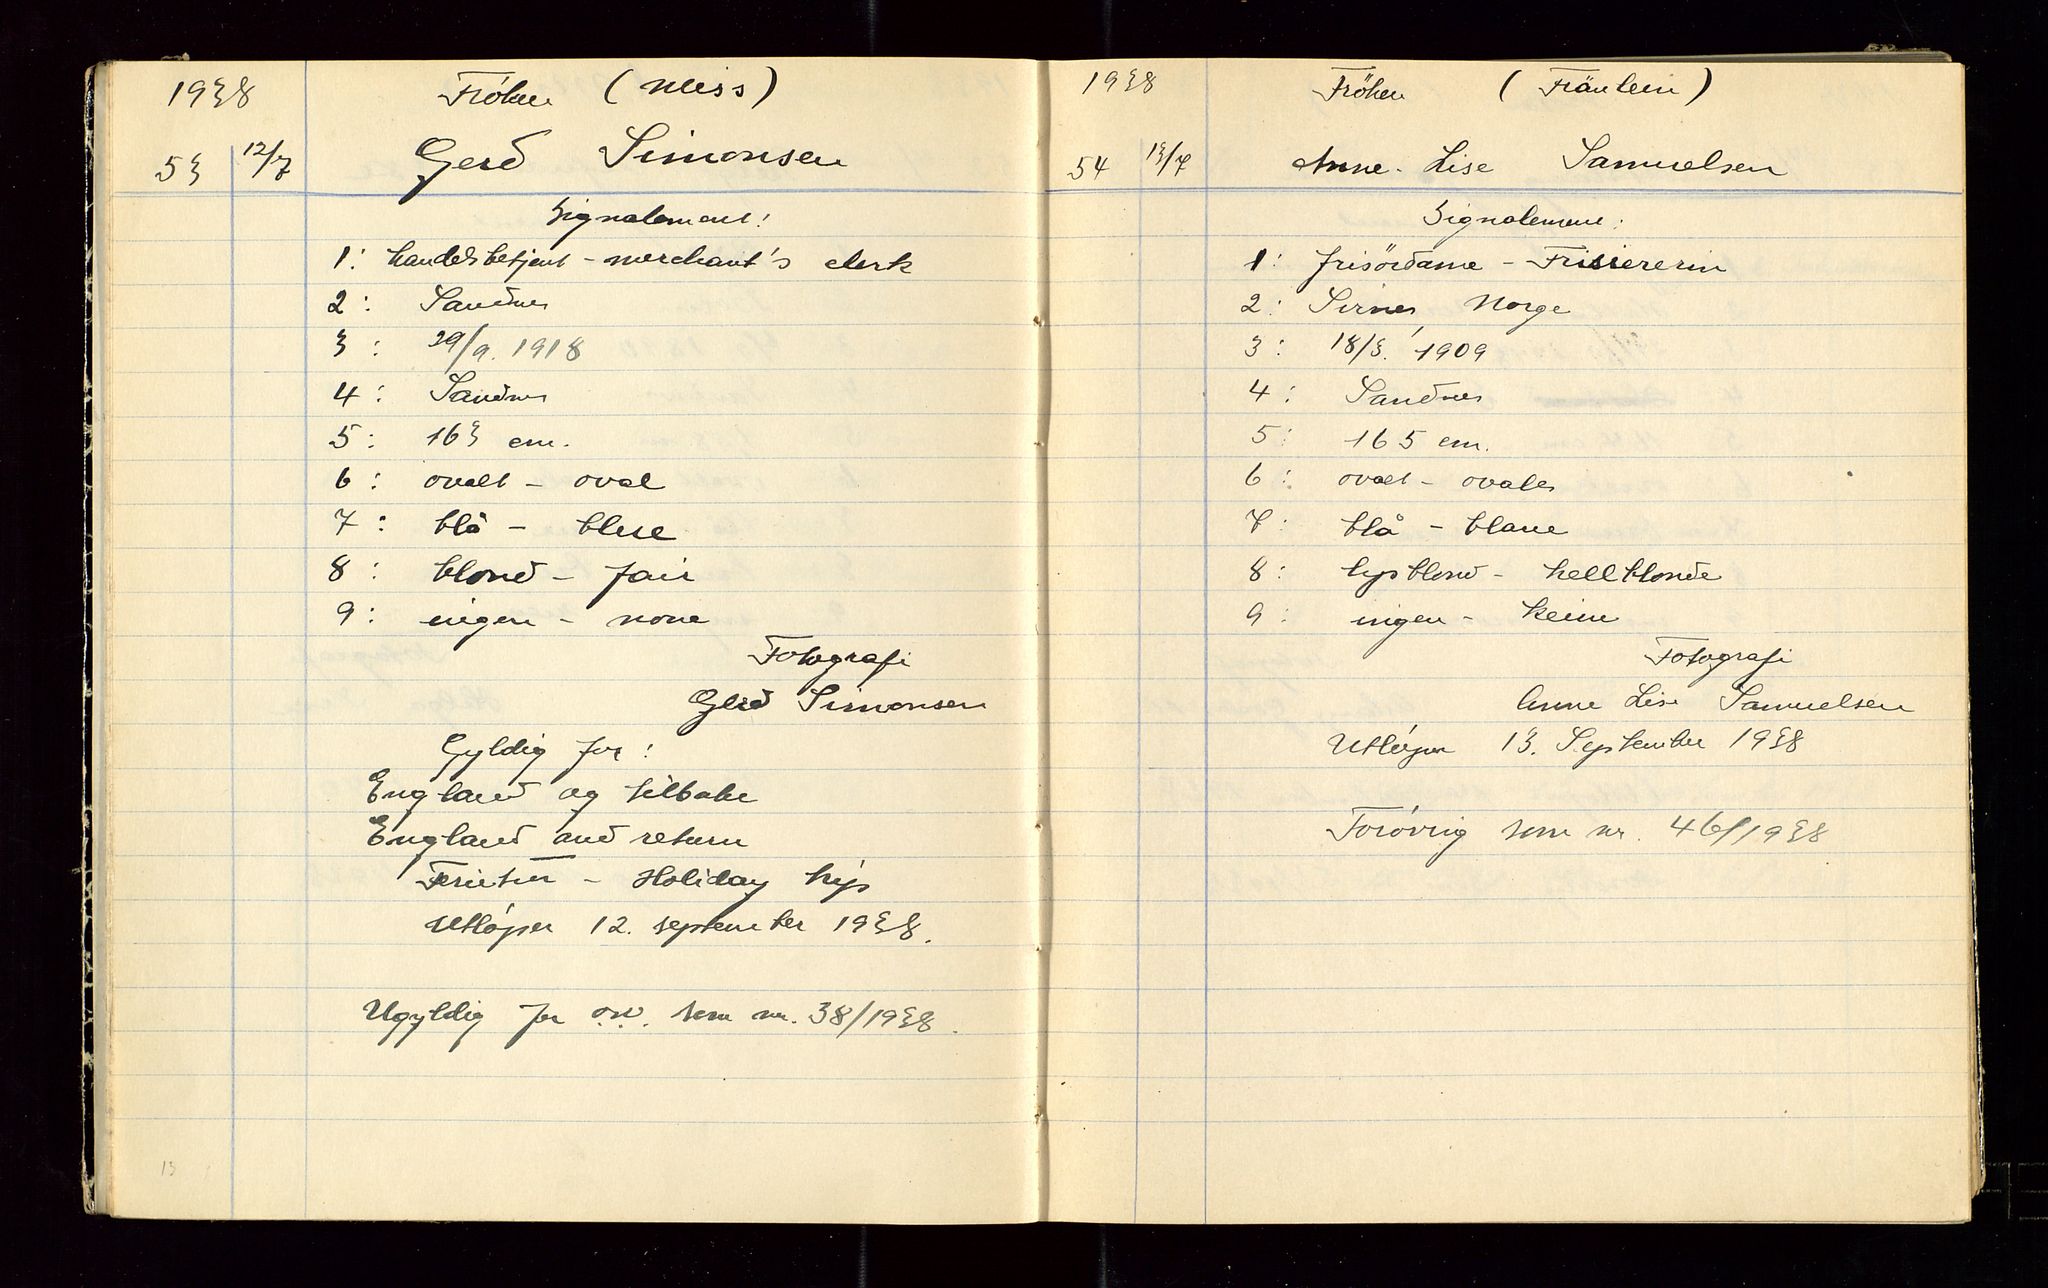 1938
Fröken (Miss)
53 12/7 Gerd Simonsen
Signalement:
1: handelsbetjent - merchant's clerk
2: Sandnes
3: 29/9. 1918
4: Sandnes
5: 163 cm.
6: ovalt - oval
7: blå - blue
8: blond - fair
9: ingen - none
Fotografi
Gerd Simonsen
Gyldig for:
England og tilbake
England and return
Ferietur - Holiday trip
Utløper 12. september 1938.
Ugyldig for o.s.v. som nr. 38/1938.
13
1938
Fröken (Fräulein)
54 13/7 Anne-Lise Samuelsen
Signalement:
1: frisördame - Frisiererin
2: Sirnes Norge
3: 18/3. 1909
4: Sandnes
5: 165 cm.
6: ovalt - ovales
7: blå - blaue
8: lysblond - hellblonde
9: ingen - keine
Fotografi
Anne Lise Samuelsen
Utløper 13. September 1938
Forøvrig som nr. 46/1938